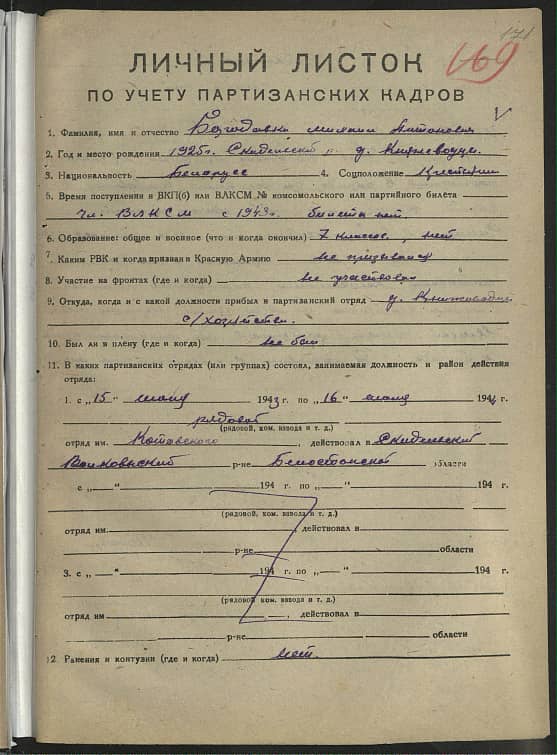 171
169
ЛИЧНЫЙ ЛИСТОК
ПО УЧЕТУ ПАРТИЗАНСКИХ КАДРОВ
1. Фамилия, имя и отчество Антонович
2. Год и место рождения 1925 г. Скидельский р. д.
3. Национальность Беларус 4. Соцположение Крестьянин
5. Время поступления в ВКП(б) или ВЛКСМ № комсомольского или партийного билета
Чл. ВЛКСМ с 1943 г. билета нет.
6. Образование: общее и военное (что и когда окончил) 7 классов, нет
7. Каким РВК и когда призван в Красную Армию не призывался
8. Участие на фронтах (где и когда) не участвовал
9. Откуда, когда и с какой должности прибыл в партизанский отряд д.
с/хозяйстве.
10. Был ли в плену (где и когда) не был
11. В каких партизанских отрядах (или группах) состоял, занимаемая должность и район действия
отряда:
1. с „15" 1943 г. по „16" 1944 г.
рядовой
(рядовой, ком. взвода и т. д.)
отряд им. Котовского, действовал в Скидельский
Волковыский р-не Белостокской области
с „ " 194 г. по „ " 194 г.
(рядовой, ком. взвода и т. д.)
отряд им. , действовал в
р-не области
3. с „ " 194 г. по „ " 194 г.
(рядовой ком. взвода и т. д.)
отряд им , действовал в
р-не области
12. Ранения и контузии (где и когда) нет.